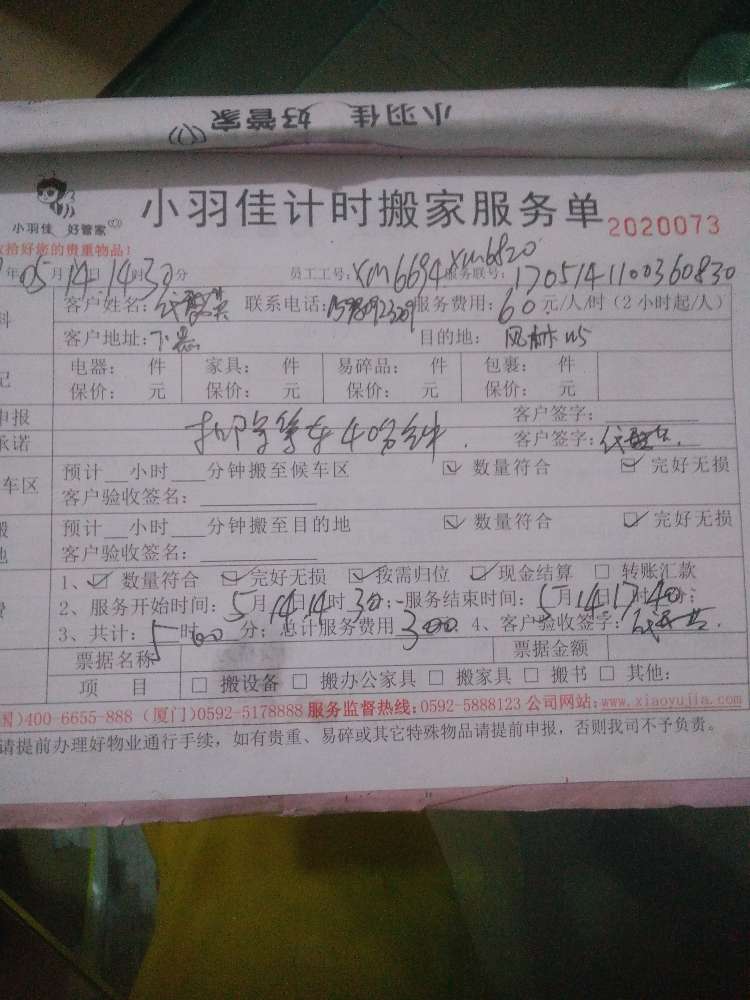 小羽佳 好管家
小羽佳 好管家
小羽佳计时搬家服务单 2020073
拾好您的贵重物品！
年05月14日14时30分 员工工号：XM6694 XM6820 服务联号：1705141100360830
客户姓名： 联系电话： 服务费用：60元/人/时（2小时起/人）
客户地址：下忠 目的地：风林W5
电器： 件 家具： 件 易碎品： 件 包裹： 件
保价： 元 保价： 元 保价： 元 保价： 元
申报 客户签字：
承诺 等车40分钟. 客户签字：
车区 预计 小时 分钟搬至候车区 ☑ 数量符合 ☑ 完好无损
客户验收签名：
预计 小时 分钟搬至目的地 ☑ 数量符合 ☑ 完好无损
客户验收签名：
1、☑ 数量符合 ☑ 完好无损 ☑ 按需归位 ☑ 现金结算 □ 转账汇款
2、服务开始时间：5月14日14时30分；服务结束时间：5月14日17时40分；
3、共计：5时00分；总计服务费用300. 4、客户验收签字：
票据名称 票据金额
项 目 □ 搬设备 □ 搬办公家具 □ 搬家具 □ 搬书 □ 其他：
国)400-6655-888 (厦门)0592-5178888 服务监督热线：0592-5888123 公司网站：www.xiaoyujia.com
请提前办理好物业通行手续，如有贵重、易碎或其它特殊物品请提前申报，否则我司不予负责。